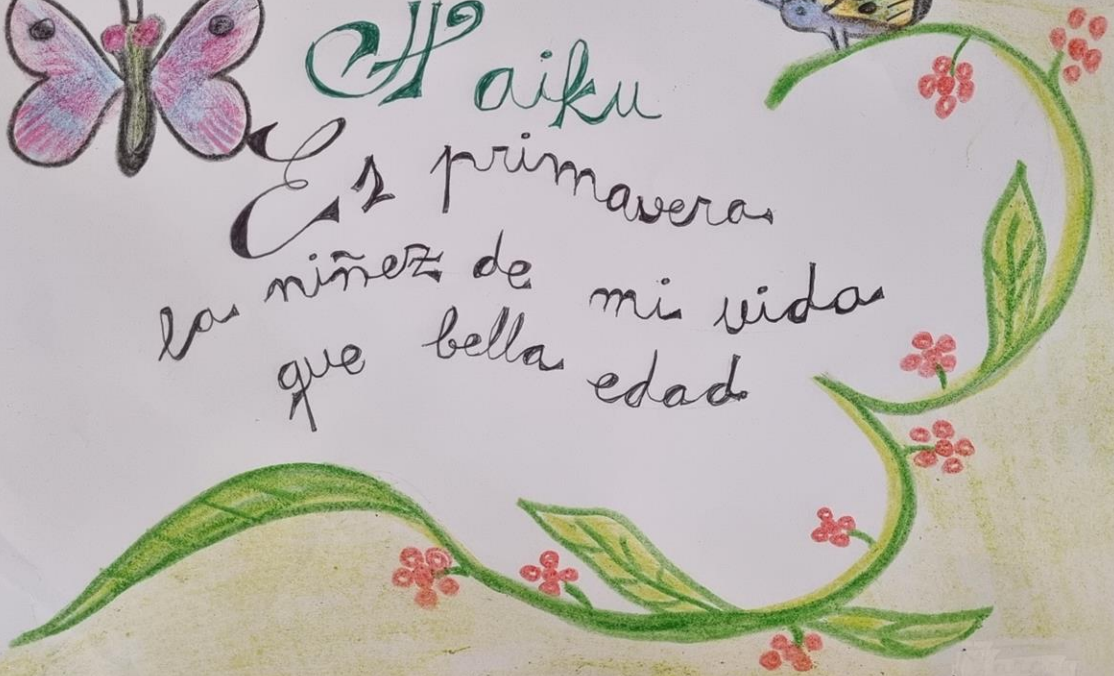 Haiku
Es primavera
la niñez de mi vida
que bella edad